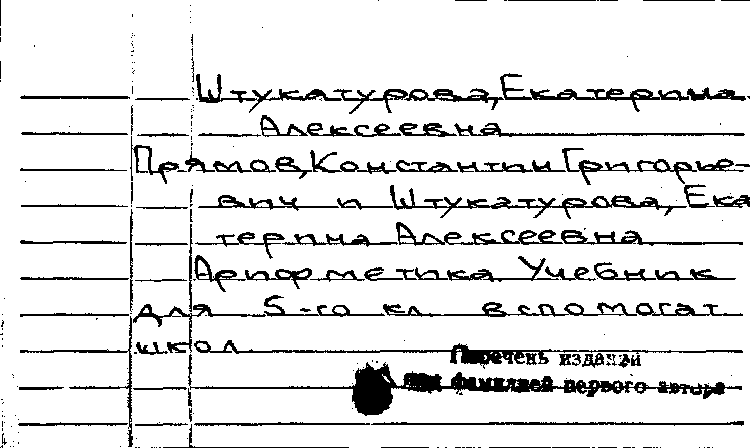 Штукатурова, Екатерина
Алексеевна
Прямов, Константин Григорье-
вич и Штукатурова, Ека
терина Алексеевна
Арифметика Учебник
для 5-го кл. вспомогат.
школ
Перечень изданий
под фамилией первого автора